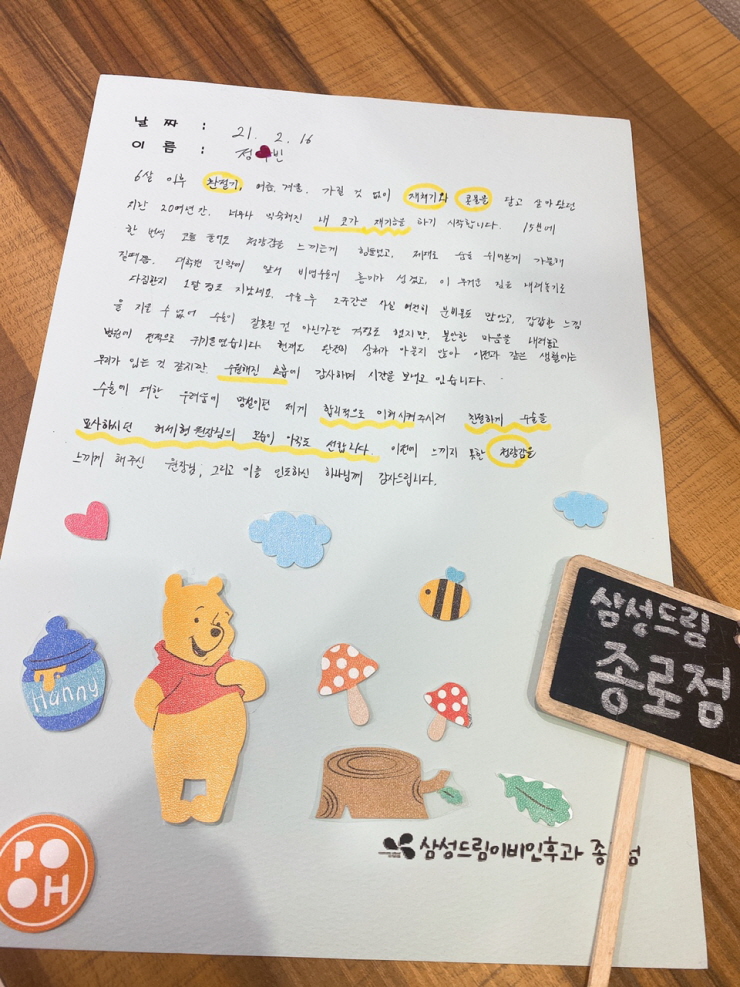 날 짜 : 21. 2. 16
이 름 : 정 빈
6살 이후 환절기, 여름, 겨울, 가릴 것 없이 재채기와 콧물을 달고 살아왔던
지난 20여년간, 너무나 익숙해진 내 코가 제기능을 하기 시작합니다. 15번에
한 번씩 코를 풀어도 청량감을 느끼는게 힘들었고, 제대로 숨을 쉬어본게 가물해
질때쯤, 대학편 진학에 앞서 비염수술에 흥미가 생겼고, 이 무거운 짐을 내려놓기로
다짐한지 1달 정도 지났네요. 수술 후 2주간은 사실 여전히 분비물도 많았고, 갑갑한 느낌
을 지울 수 없어 수술이 잘못된건 아닌가란 걱정도 했지만, 불안한 마음을 내려놓고
병원에 전적으로 귀기울였습니다. 현재도 완전히 상처가 아물지 않아 이전과 같은 생활에는
무리가 있는 것 같지만, 수월해진 호흡에 감사하며 시간을 보내고 있습니다.
수술에 대한 두려움이 망설이던 제게 합리적으로 이해시켜주시려 친절하게 수술을
묘사하시던 허세형 원장님의 모습이 아직도 선합니다. 이전에 느끼지 못한 청량감을
느끼게 해주신 원장님, 그리고 이를 인도하신 하나님께 감사드립니다.
Hunny
POOH
삼성드림
종로점
삼성드림이비인후과 종 점